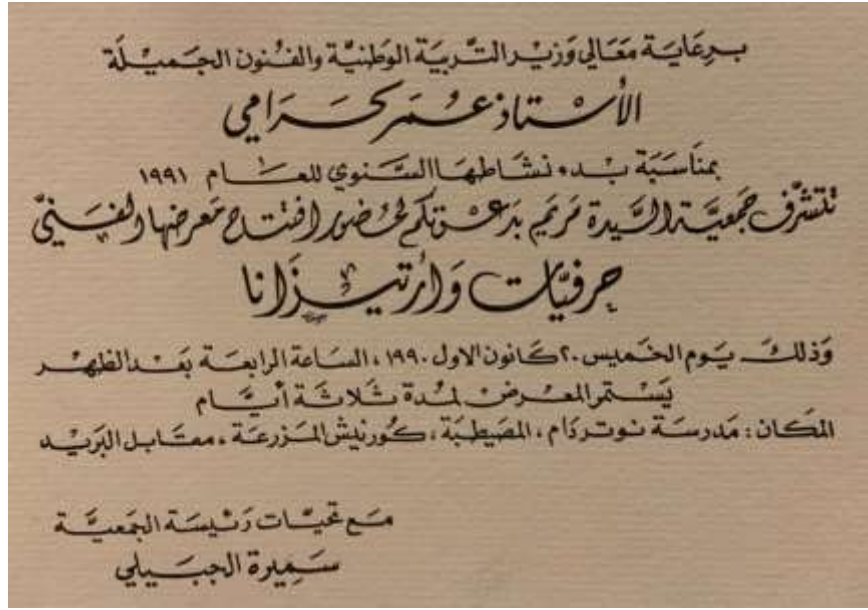 برعاية معالي وزير التربية الوطنية والفنون الجميلة
الأستاذ عمر كرامي
بمناسبة بدء نشاطها السنوي للعام ١٩٩١
تتشرف جمعية السيدة مريم بدعوتكم لحضور افتتاح معرضها الفني
حرفيات وأرتيزانا
وذلك يوم الخميس ٢٠ كانون الاول ١٩٩٠، الساعة الرابعة بعد الظهر
يستمر المعرض لمدة ثلاثة أيام
المكان: مدرسة نوتردام، المصيطبة، كورنيش المزرعة، مقابل البريد
مع تحيات رئيسة الجمعية
سميرة الجبيلي